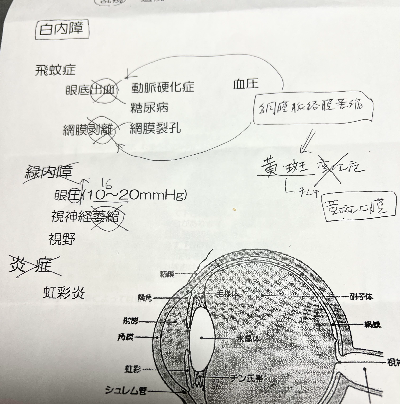 白内障
飛蚊症
眼底出血 動脈硬化症 血圧
糖尿病
網膜剥離 網膜裂孔
網膜脈絡膜萎縮
黄斑変性
緑内障
16
眼圧(10～20mmHg)
視神経萎縮
視野
炎症
虹彩炎
硝子体
網膜
角膜
水晶体
虹彩
チン氏帯
シュレム管